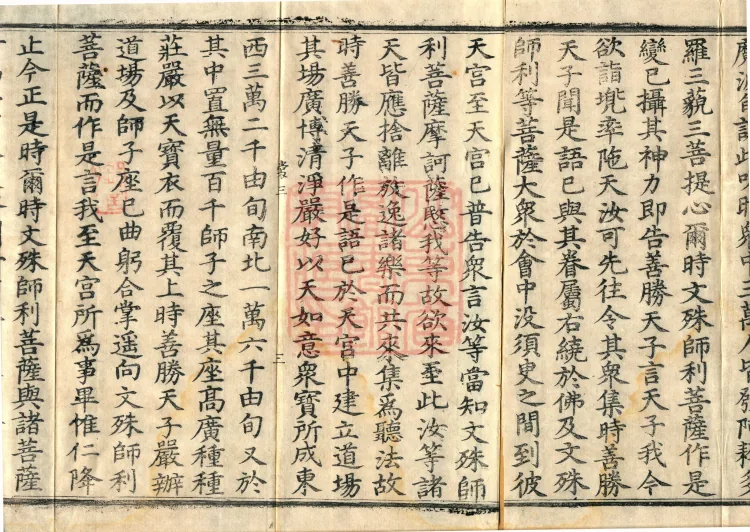 羅三藐三菩提心爾時文殊師利菩薩作是
變已攝其神力即告善勝天子言天子我今
欲詣兜率陁天汝可先往令其衆集時善勝
天子聞是語已與其眷屬右繞於佛及文殊
師利等菩薩大衆於會中没須臾之間到彼
天宫至天宫已普告衆言汝等當知文殊師
利菩薩摩訶薩愍我等故欲來至此汝等諸
天皆應捨離放逸諸樂而共來集爲聽法故
時善勝天子作是語已於天宫中建立道場
其場廣博清淨嚴好以天如意衆寶所成東
西三萬二千由旬南北一萬六千由旬又於
其中置無量百千師子之座其座髙廣種種
莊嚴以天寶衣而覆其上時善勝天子嚴辦
道場及師子座已曲躬合掌遥向文殊師利
菩薩而作是言我至天宫所爲事畢惟仁降
止今正是時爾時文殊師利菩薩與諸菩薩